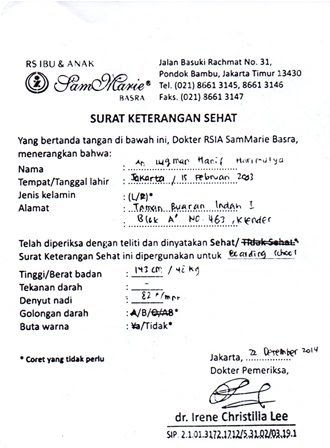 RS IBU & ANAK
SamMarie®
BASRA
Jalan Basuki Rachmat No. 31,
Pondok Bambu, Jakarta Timur 13430
Tel. (021) 8661 3145, 8661 3146
Faks. (021) 8661 3147
SURAT KETERANGAN SEHAT
Yang bertanda tangan di bawah ini, Dokter RSIA SamMarie Basra,
menerangkan bahwa:
Nama : An Luqman Hanif
Tempat/Tanggal lahir : Jakarta / 15 Februari 2003
Jenis kelamin : (L/P)*
Alamat : Taman Buaran Indah I
Blok A NO. 463, Klender
Telah diperiksa dengan teliti dan dinyatakan Sehat/ Tidak Sehat.*
Surat Keterangan Sehat ini dipergunakan untuk Boarding School
Tinggi/Berat badan : 143 cm / 42 kg
Tekanan darah : -
Denyut nadi : 82 x/mnt
Golongan darah : A/B/O/AB*
Buta warna : Ya/Tidak*
* Coret yang tidak perlu
Jakarta, 22 Desember 2014
Dokter Pemeriksa,
dr. Irene Christilia Lee
SIP. 2.1.01.3172.1712/5.31.02/03.19.1